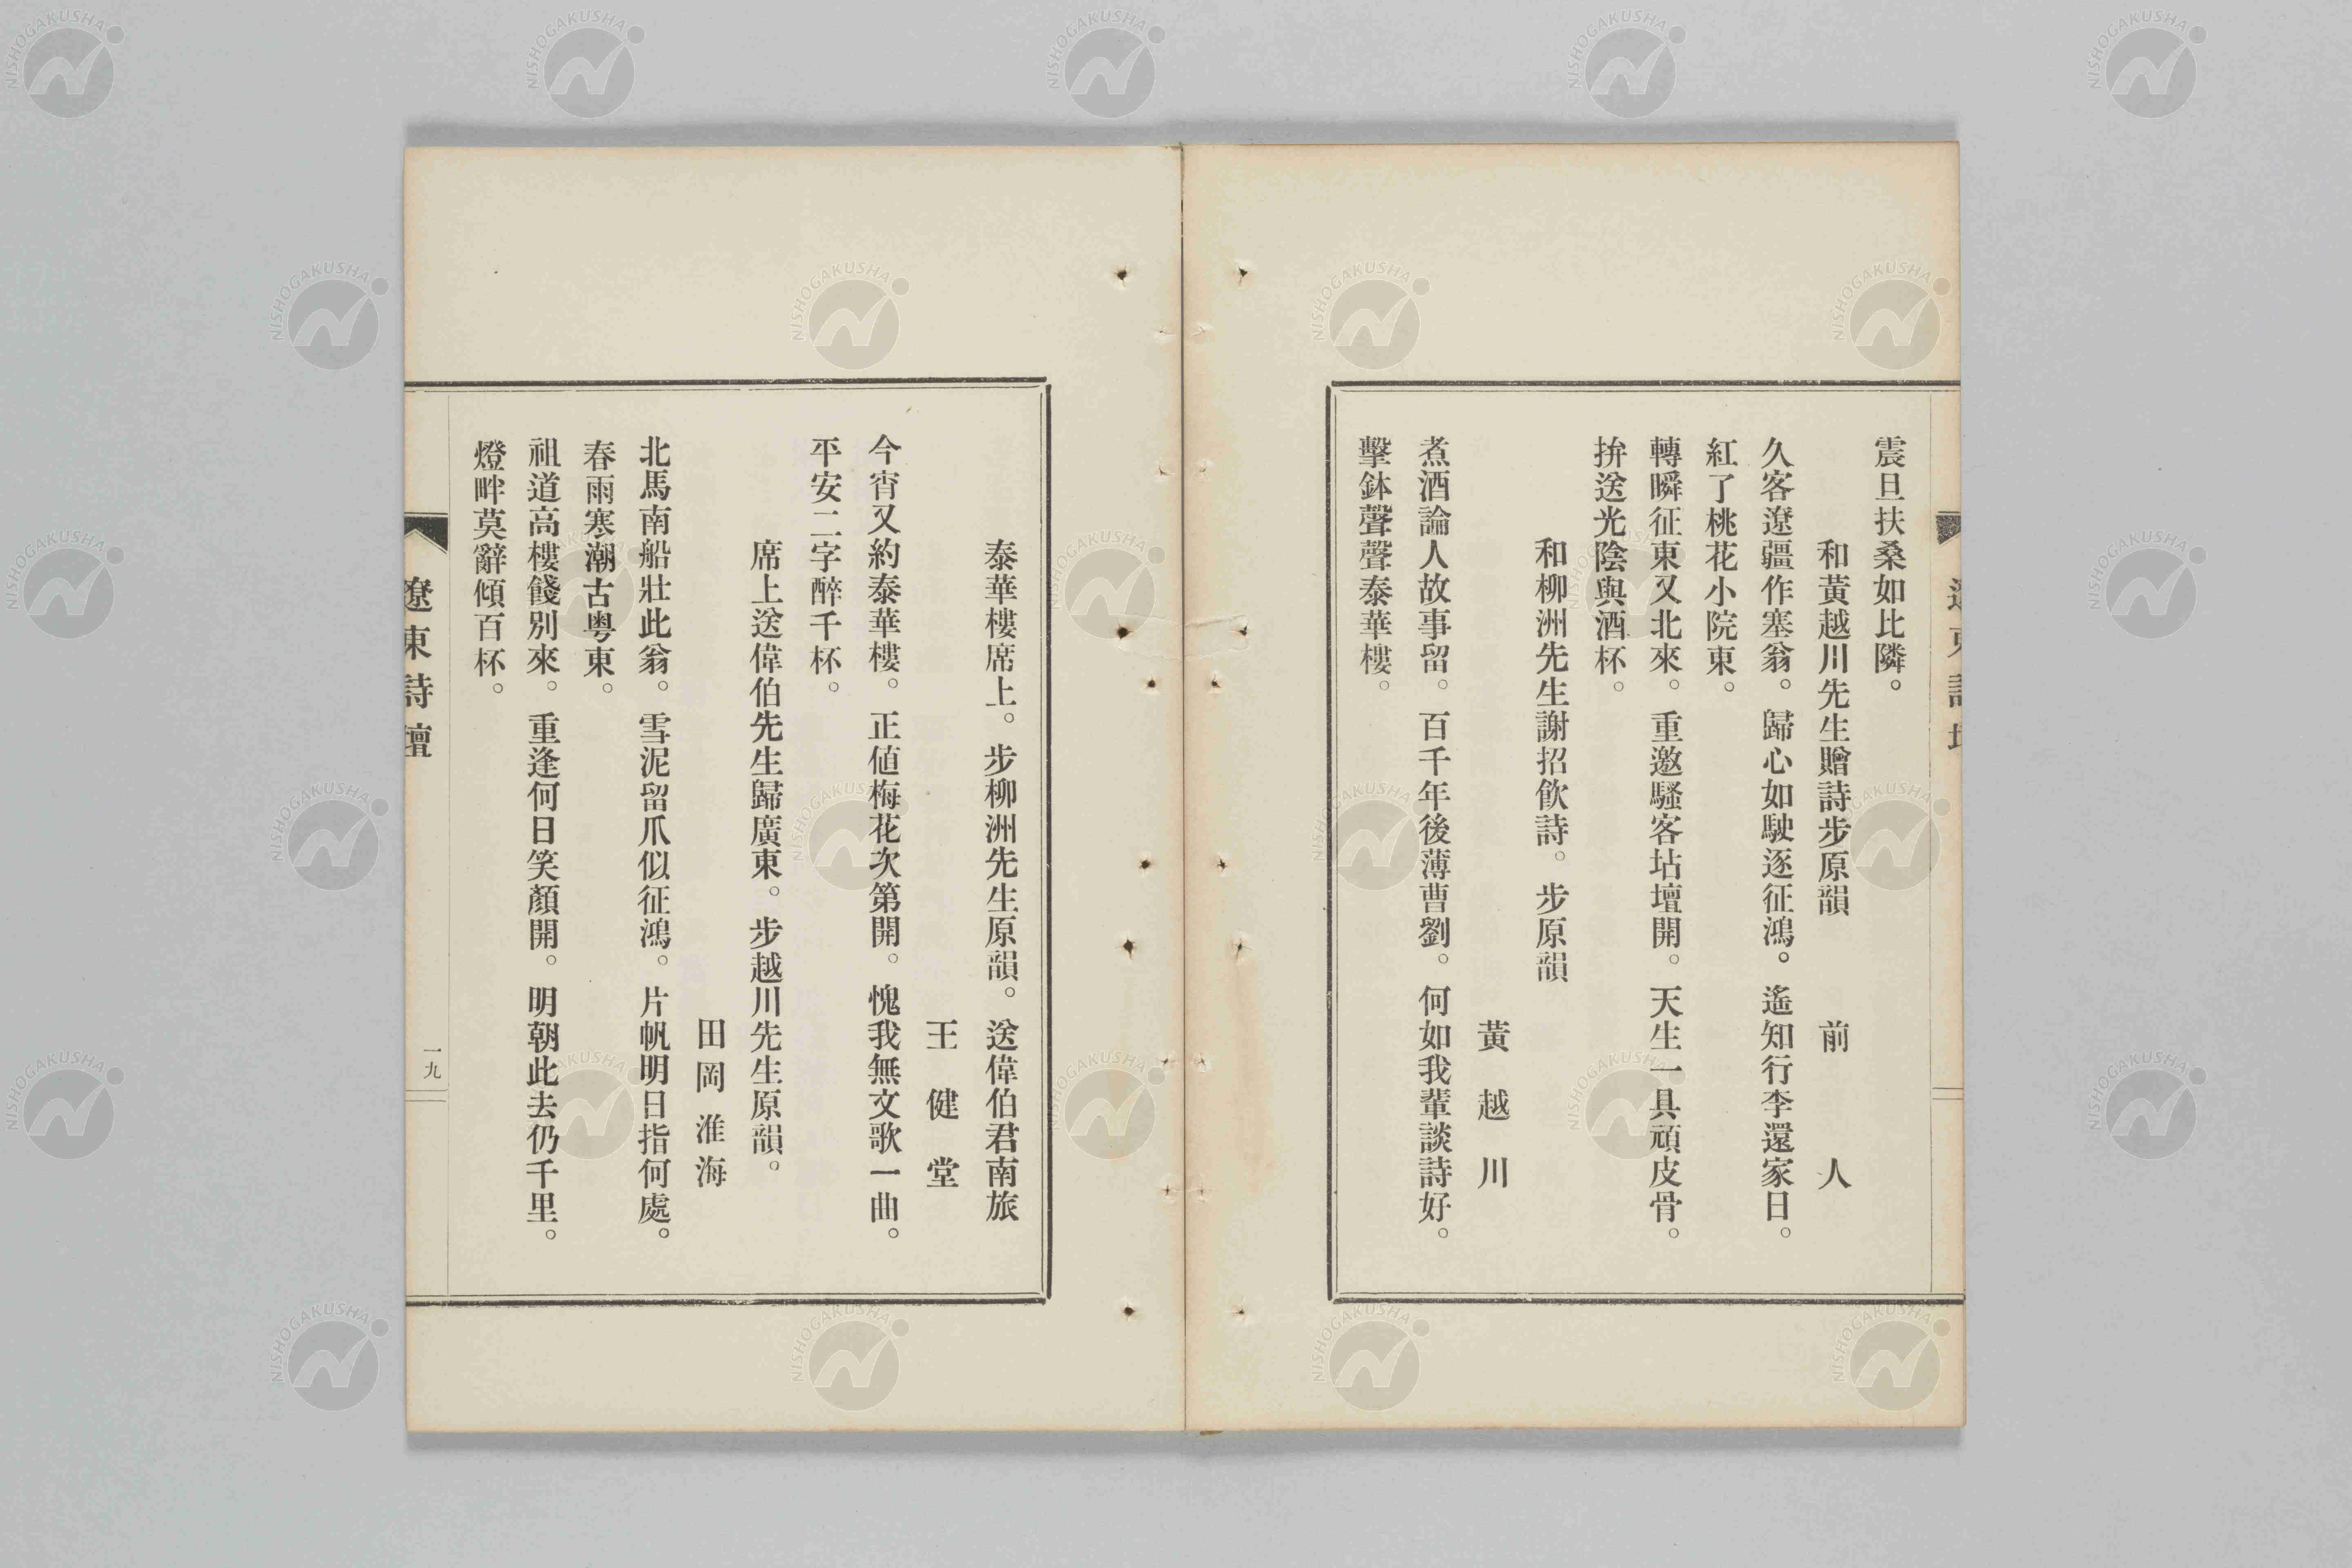 震旦扶桑如比隣。
和黃越川先生贈詩步原韻　前人
久客遼疆作塞翁。歸心如駛逐征鴻。遙知行李還家日。
紅了桃花小院東。
轉瞬征東又北來。重邀騷客坫壇開。天生一具頑皮骨。
拚送光陰與酒杯。
和柳洲先生謝招飮詩。步原韻
黃越川
煮酒論人故事留。百千年後薄曹劉。何如我輩談詩好。
擊鉢聲聲泰華樓。
泰華樓席上。步柳洲先生原韻。送偉伯君南旅
王健堂
今宵又約泰華樓。正値梅花次第開。愧我無文歌一曲。
平安二字醉千杯。
席上送偉伯先生歸廣東。步越川先生原韻。
田岡淮海
北馬南船壯此翁。雪泥留爪似征鴻。片帆明日指何處。
春雨寒潮古粤東。
祖道高樓餞別來。重逢何日笑顏開。明朝此去仍千里。
燈畔莫辭傾百杯。
遼東詩壇
一九
NISHOGAKUSHA